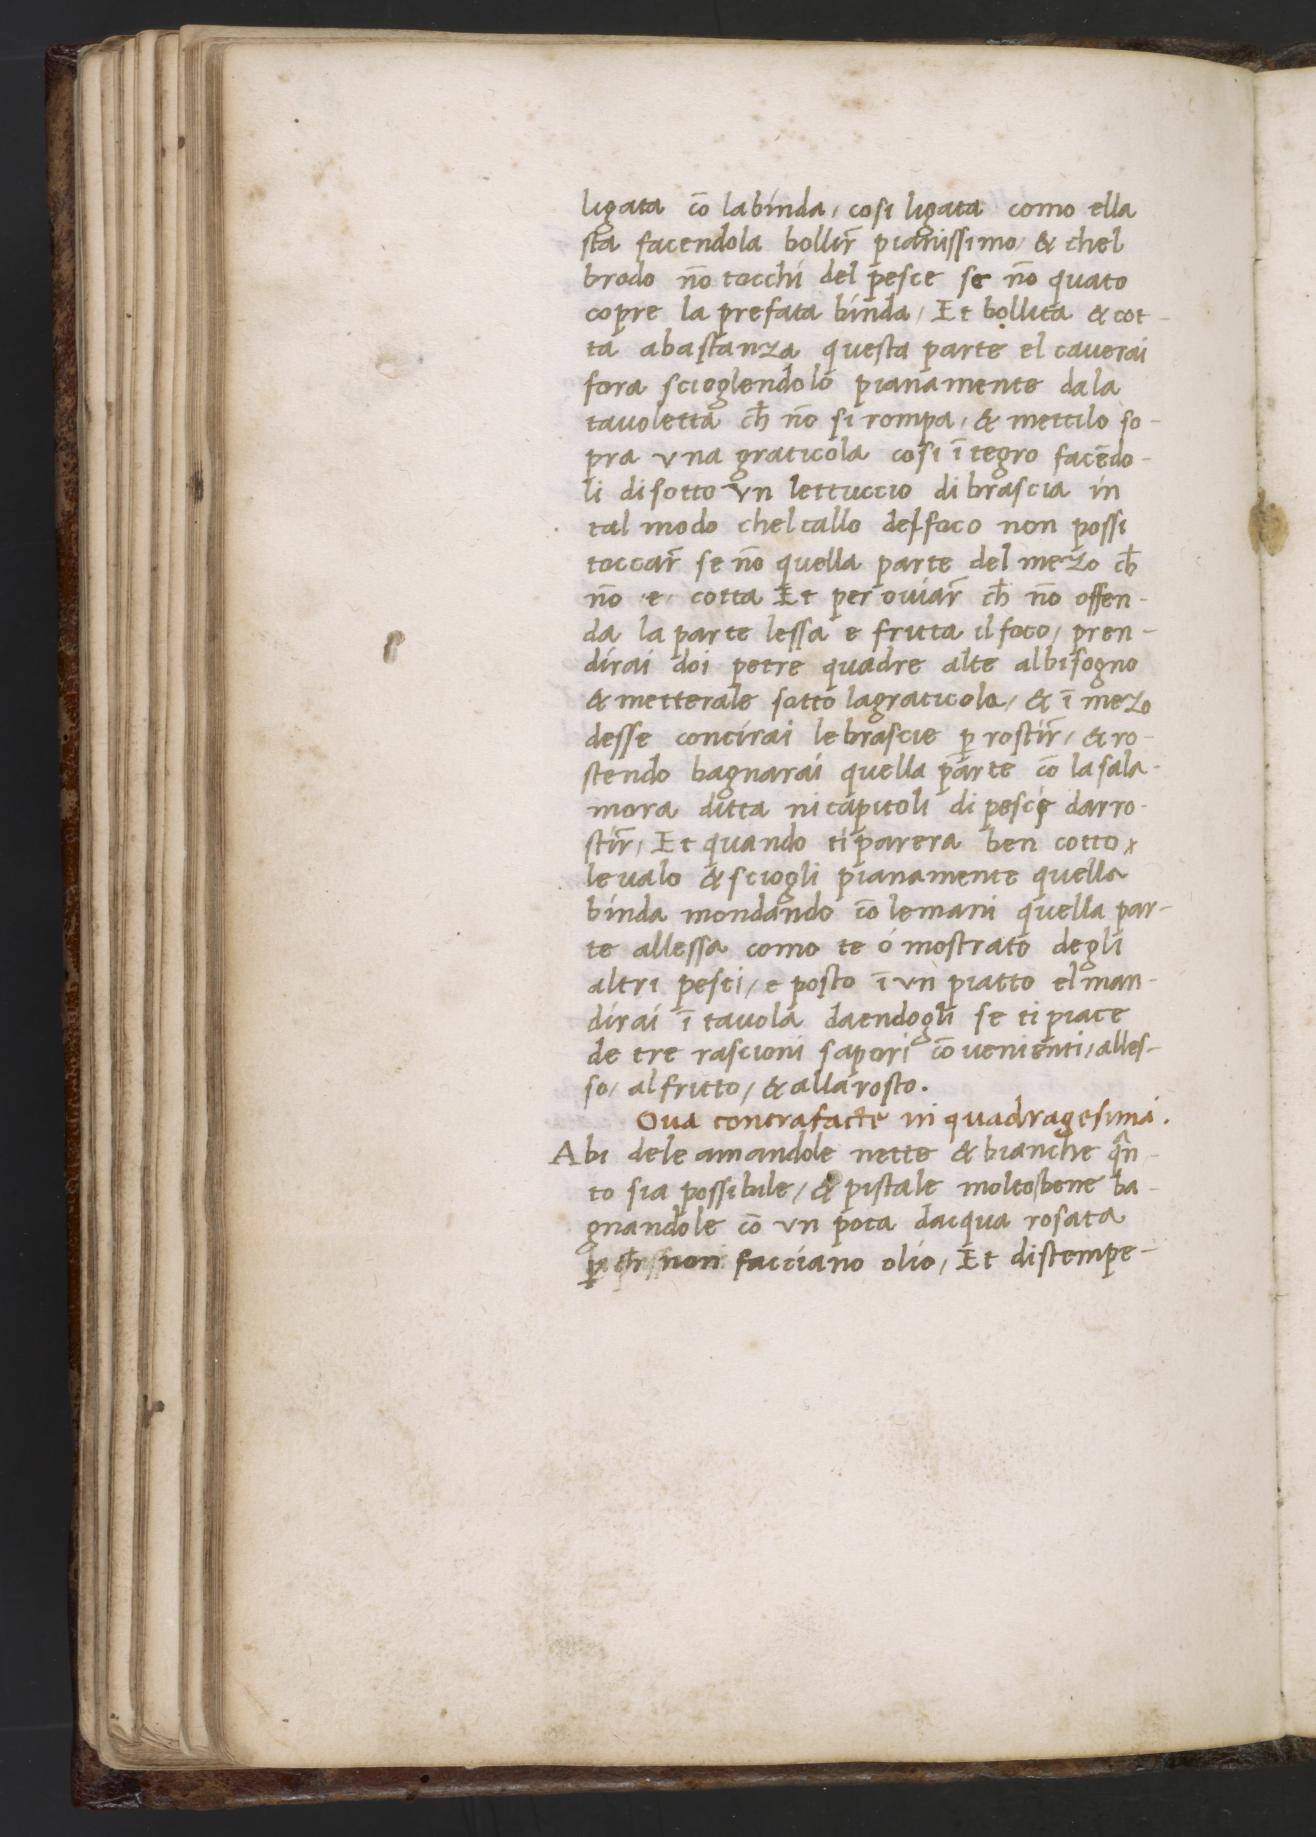 ligata cō la binda, cosi ligata como ella
sta facendola bollir̄ pianissimo, & chel
brodo nō tocchi del pesce se nō quāto
copre la prefata binda, Et bollita & cot-
ta abastanza questa parte el caverai
fora scioglendolo pianamente dala
tavoletta ch̄ nō si rompa, & mettilo so-
pra una graticola cosi ītegro facēdo-
li di sotto un lettuccio di brascia in
tal modo chel callo del foco non possi
toccar̄ se nō quella parte del mezo ch̄
nō e cotta Et per oviar̄ ch̄ nō offen-
da la parte lessa e fritta il foco, pren-
dirai doi petre quadre alte al bisogno
& metterale sotto la graticola, & ī mezo
desse concirai le brascie ꝑ rostir̄, & ro-
stendo bagnarai quella parte cō la sala-
mora ditta ni capitoli di pesce darro-
stir̄, Et quando ti parera ben cotto
levalo & sciogli pianamente quella
binda mondando cō le mani quella par-
te allessa como te ó mostrato degli
altri pesci, e posto ī un piatto el man-
dirai ī tavola daendogli se ti piace
de tre rascioni sapori cō uenienti, alles-
so, al fritto, & allarosto.
Ova contrafacte in quadragesima.
Abi dele amandole nette & bianche qn̄-
to sia possibile, & pistale molto bene ba-
gnandole cō un poca dacqua rosata
ꝑ ch̄ non facciano olio, Et distempe-